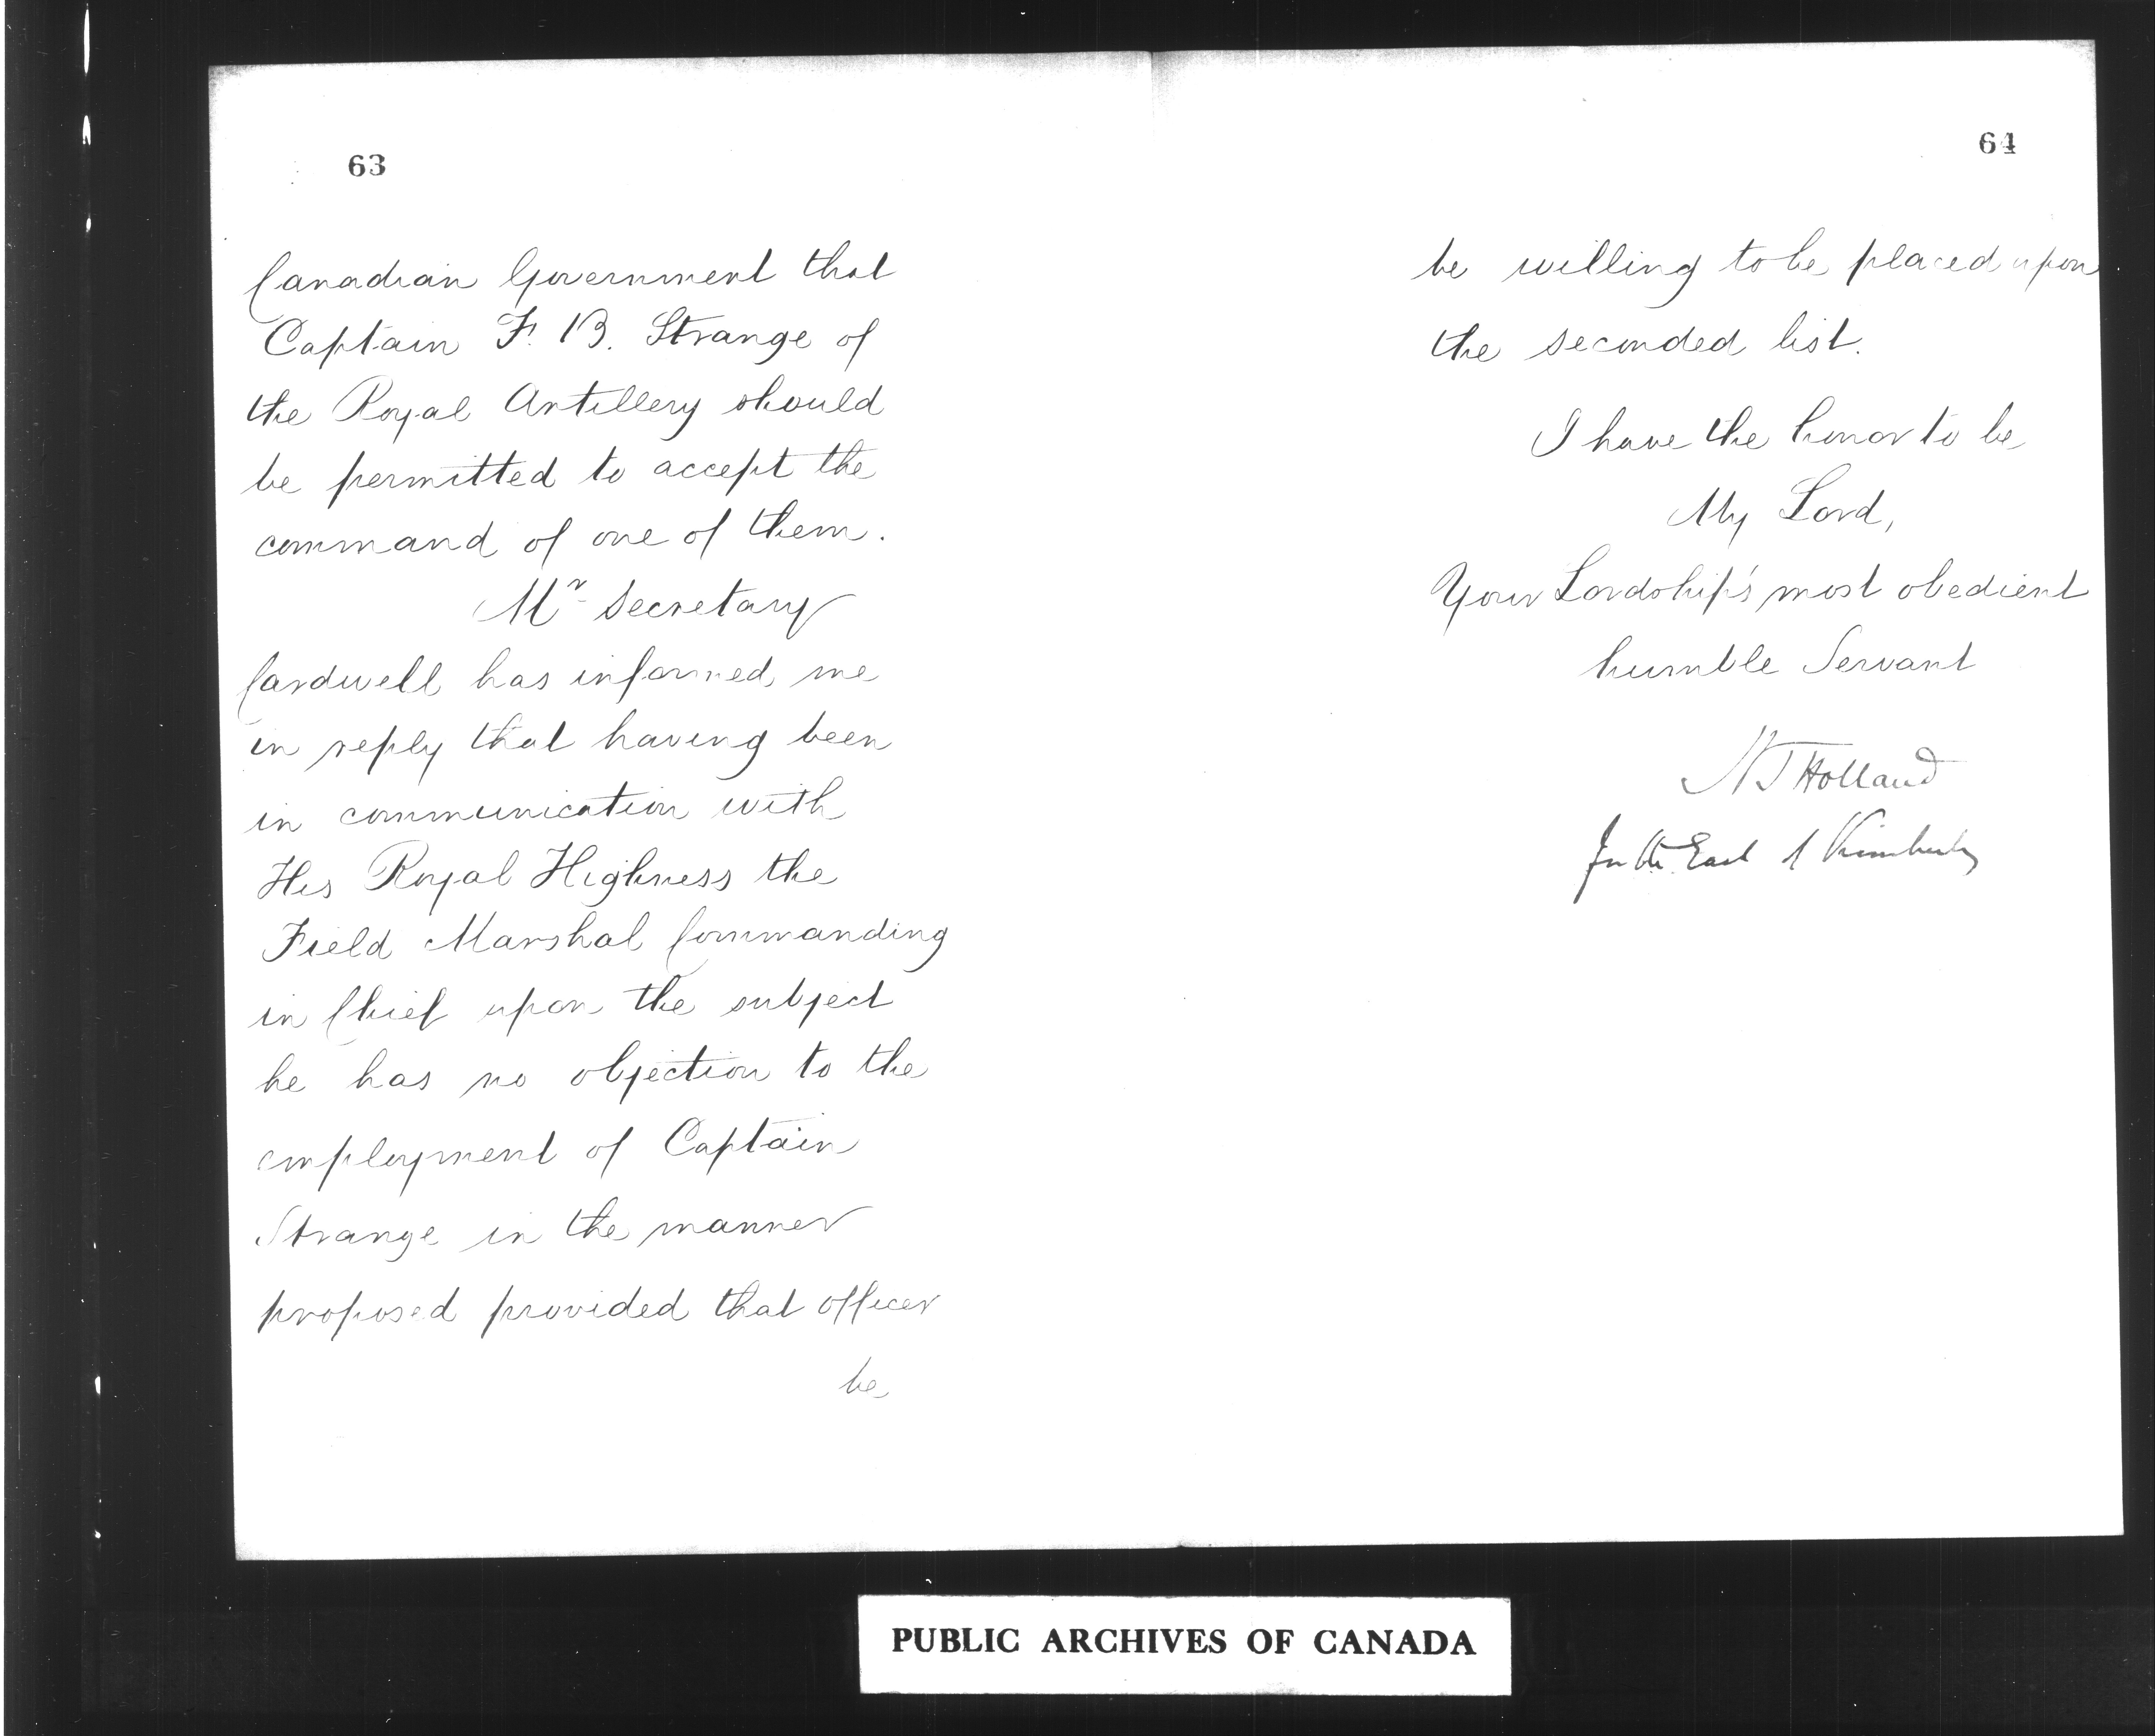 63
Canadian Government that
Captain F. B. Strange of
the Royal Artillery should
be permitted to accept the
command of one of them.
Mr Secretary
Cardwell has informed me
in reply that having been
in communication with
His Royal Highness the
Field Marshal Commanding
in Chief upon the subject
he has no objection to the
employment of Captain
Strange in the manner
proposed provided that officer
be
64
be willing to be placed upon
the seconded list.
I have the honor to be
My Lord,
Your Lordship's most obedient
humble Servant
Holland
For the Earl of Kimberley
PUBLIC ARCHIVES OF CANADA